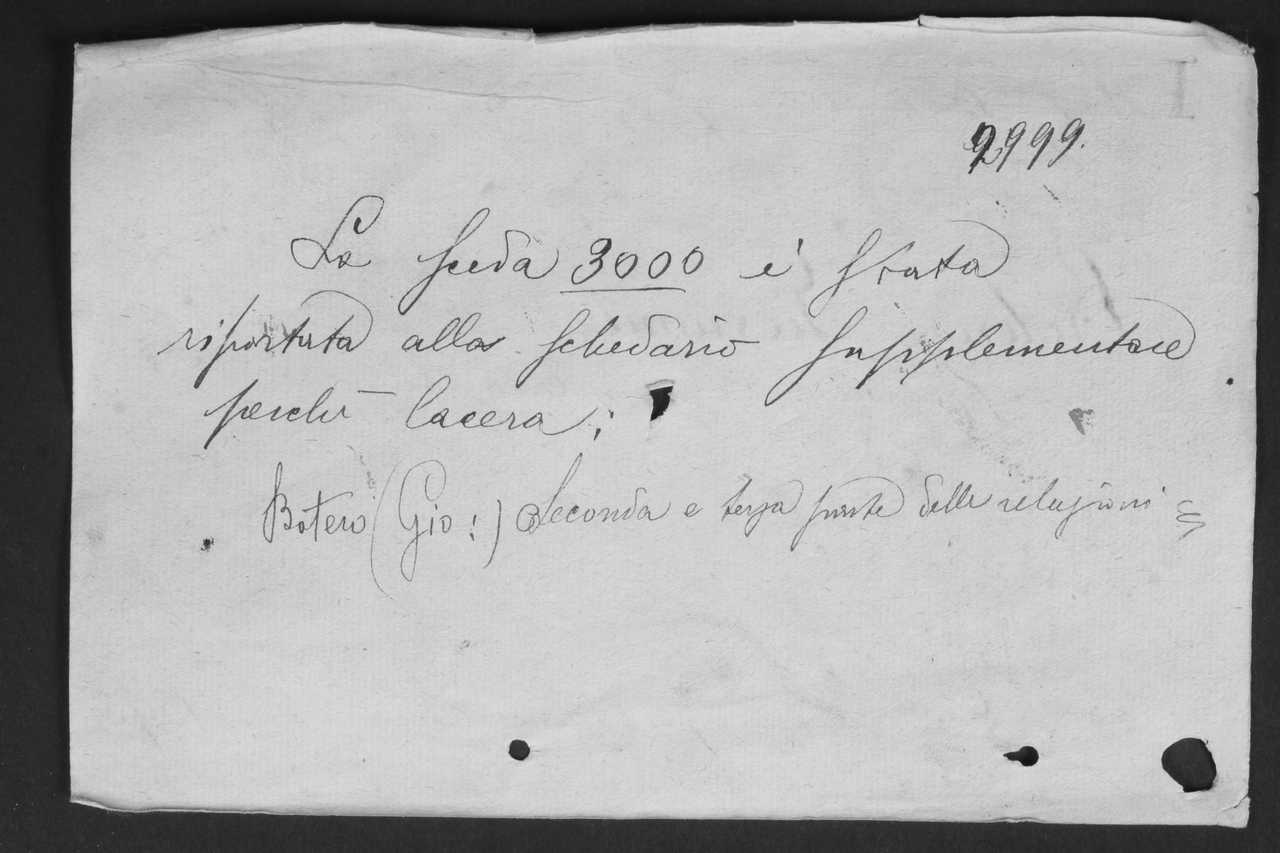 2999.
La sceda 3000 è stata
riportata allo schedario supplementare
perchè lacera;
Botero (Gio:) Seconda e terza parte delle relazioni